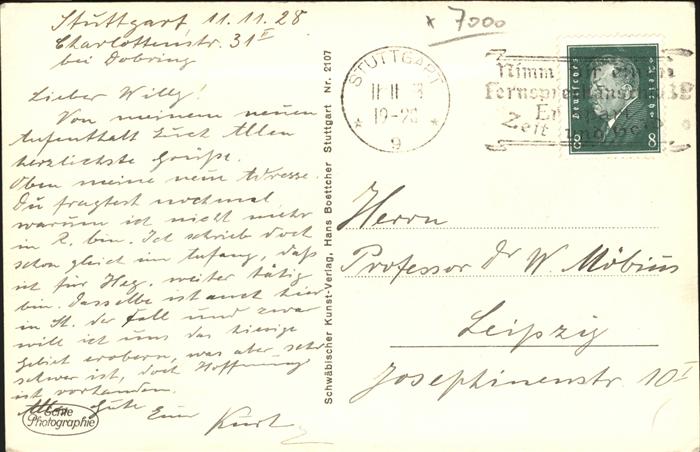 Stuttgart 11.11.28
Charlottenstr. 31 I
bei Dobring
Lieber Willy!
Von meinem neuen
Aufenthalt Euch Allen
herzlichste Grüße.
Oben meine neue Adresse.
Du fragtest nochmal
warum ich nicht mehr
in R. bin. Ich schrieb doch
schon gleich im Anfang, daß
ich für Heg. weiter tätig
bin. Dasselbe ist auch hier
in St. der Fall und zwar
will ich uns das hiesige
Gebiet erobern, was aber sehr
schwer ist, doch Hoffnung
ist vorhanden.
Alles Gute
Euer Kurt
Echte
Photographie
Schwäbischer Kunst-Verlag, Hans Boettcher Stuttgart Nr. 2107
x 7000
STUTTGART
11 11 8
19-20
9
Nimm
Fernsprechanschluß
Zeit und Geld
Deutsches Reich
8 8
Herrn
Professor Dr W. Möbius
Leipzig
Josephinenstr. 10 I